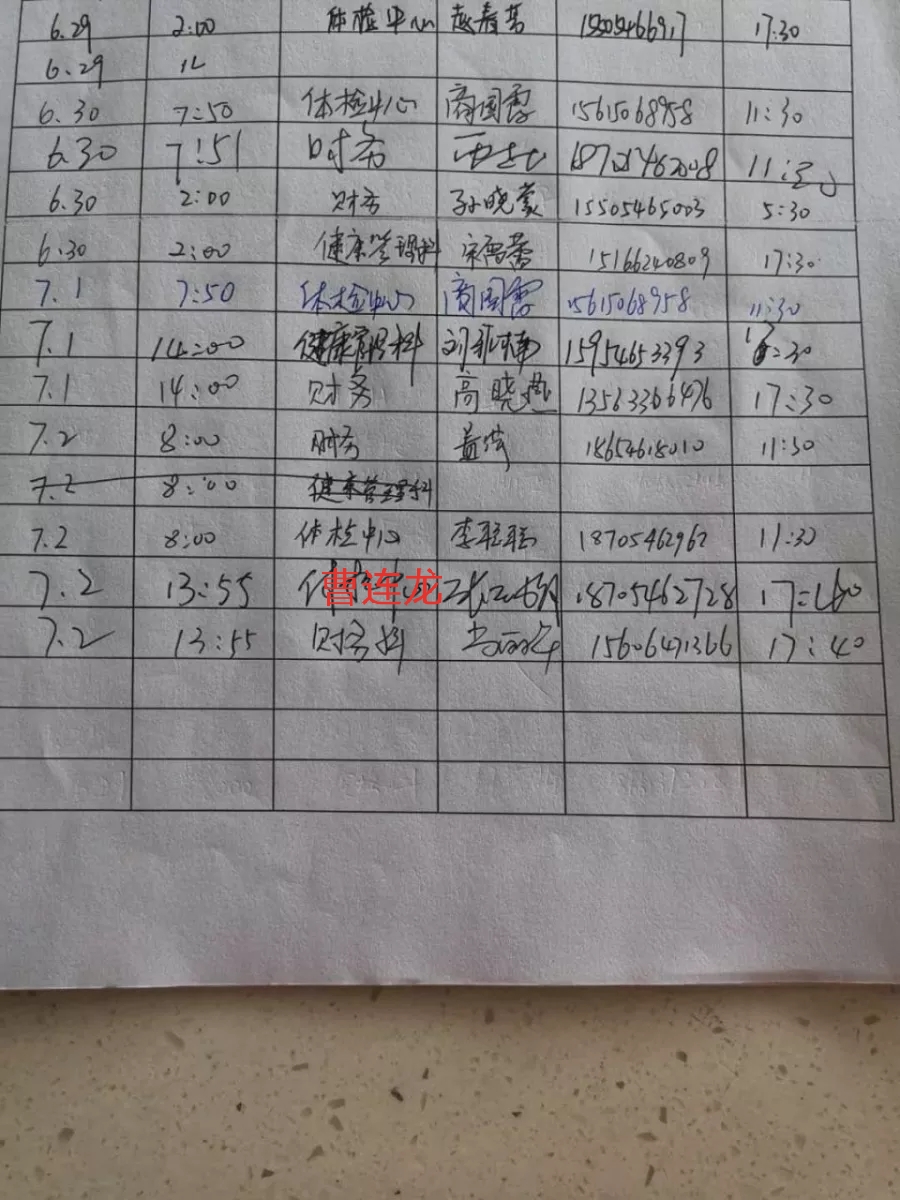 6.29 2:00 体检中心 赵春芳 17:30
6.29
6.30 7:50 体检中心 商国雪 15615068958 11:30
6.30 7:51 财务 18701462008
6.30 2:00 财务 孙晓蒙 15505465003 5:30
6.30 2:00 健康管理科 15166240809 17:30
7.1 7:50 体检中心 商国雪 15615068958 11:30
7.1 14:00 健康管理科 15954653393
7.1 14:00 财务 高晓燕 13563366476 17:30
7.2 8:00 财务 18654618010 11:30
7.2 8:00 健康管理科
7.2 8:00 体检中心 李聪聪 18705462962 11:30
7.2 13:55 曹连龙 18705462728
7.2 13:55 财务科 15606471366 17:40